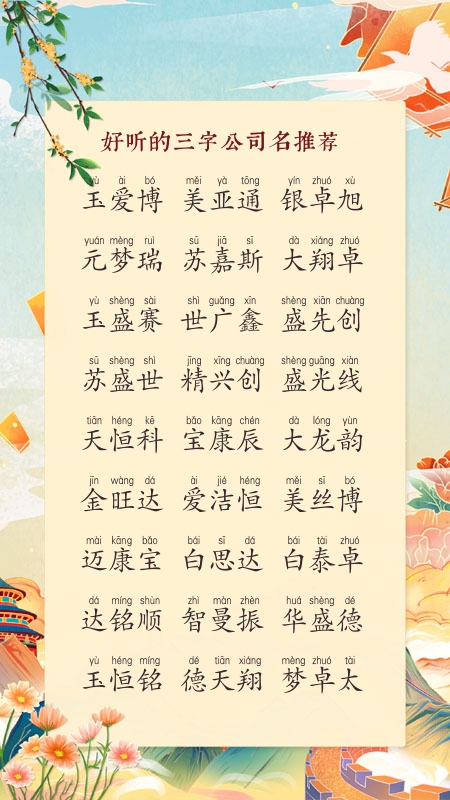 好听的三字公司名推荐
yù ài bó měi yà tōng yín zhuó xù
玉爱博 美亚通 银卓旭
yuán mèng ruì sū jiā sī dà xiáng zhuó
元梦瑞 苏嘉斯 大翔卓
yù shèng sài shì guǎng xīn shèng xiān chuàng
玉盛赛 世广鑫 盛先创
sū shèng shì jīng xīng chuàng shèng guāng xiàn
苏盛世 精兴创 盛光线
tiān héng kē bǎo kāng chén dà lóng yùn
天恒科 宝康辰 大龙韵
jīn wàng dá ài jié héng měi sī bó
金旺达 爱洁恒 美丝博
mài kāng bǎo bái sī dá bái tài zhuó
迈康宝 白思达 白泰卓
dá míng shùn zhì màn zhèn huá shèng dé
达铭顺 智曼振 华盛德
yù héng míng dé tiān xiáng mèng zhuó tài
玉恒铭 德天翔 梦卓太